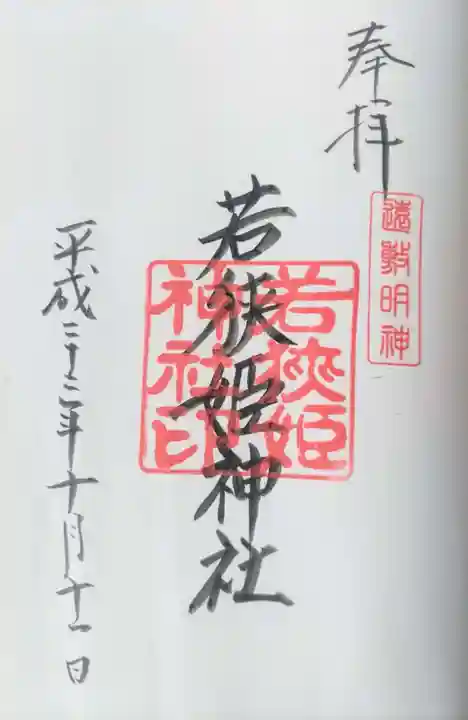 奉拝
遠敷明神
若狹姫神社
若狹姫
神社印
平成二十三年十月十一日